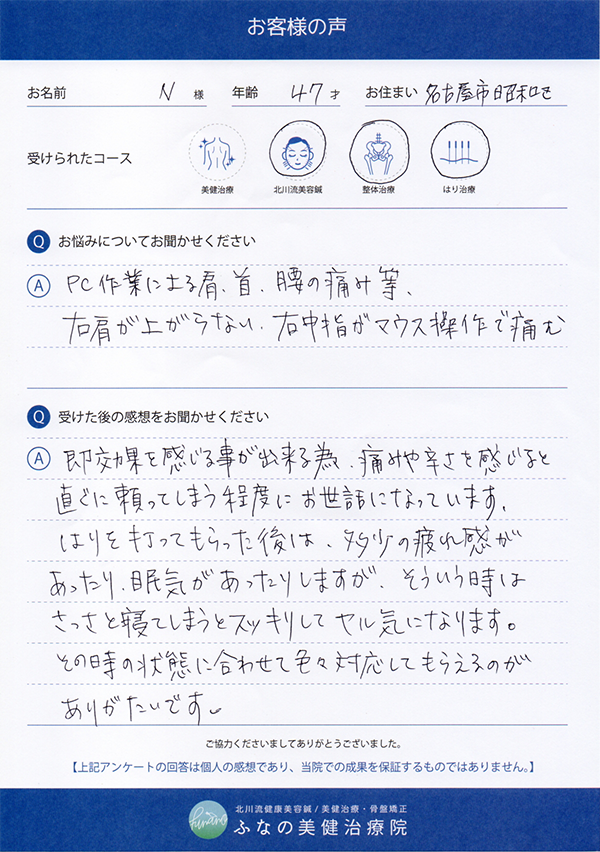 お客様の声
お名前 N 様 年齢 47才 お住まい 名古屋市昭和区
受けられたコース
美健治療 北川流美容鍼 整体治療 はり治療
Q お悩みについてお聞かせください
A PC作業による肩、首、腰の痛み等、
右肩が上がらない、右中指がマウス操作で痛む
Q 受けた後の感想をお聞かせください
A 即効果を感じる事が出来る為、痛みや辛さを感じると
直ぐに頼ってしまう程度にお世話になっています。
はりを打ってもらった後は、多少の疲れ感が
あったり、眠気があったりしますが、そういう時は
さっさと寝てしまうとスッキリしてヤル気になります。
その時の状態に合わせて色々対応してもらえるのが
ありがたいです。
ご協力くださいましてありがとうございました。
【上記アンケートの回答は個人の感想であり、当院での成果を保証するものではありません。】
北川流健康美容鍼/美健治療・骨盤矯正
funano ふなの美健治療院